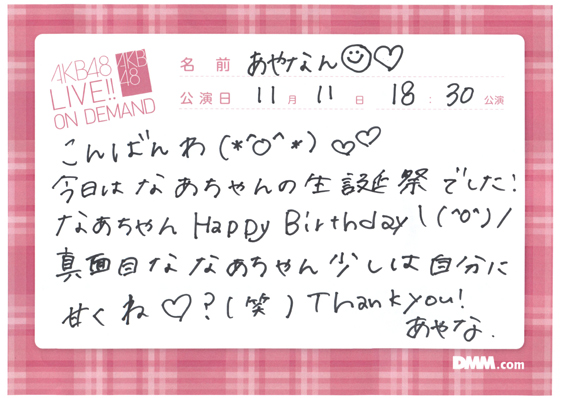 AKB48
LIVE!!
ON DEMAND
AKB
48
名前 あやなん☺♡
公演日 11月 11日 18:30公演
こんばんわ(*^O^*)♡♡
今日はなあちゃんの生誕祭でした!
なあちゃん Happy Birthday \(^o^)/
真面目ななあちゃん少しは自分に
甘くね♡?(笑) Thank you!
あやな.
DMM.com